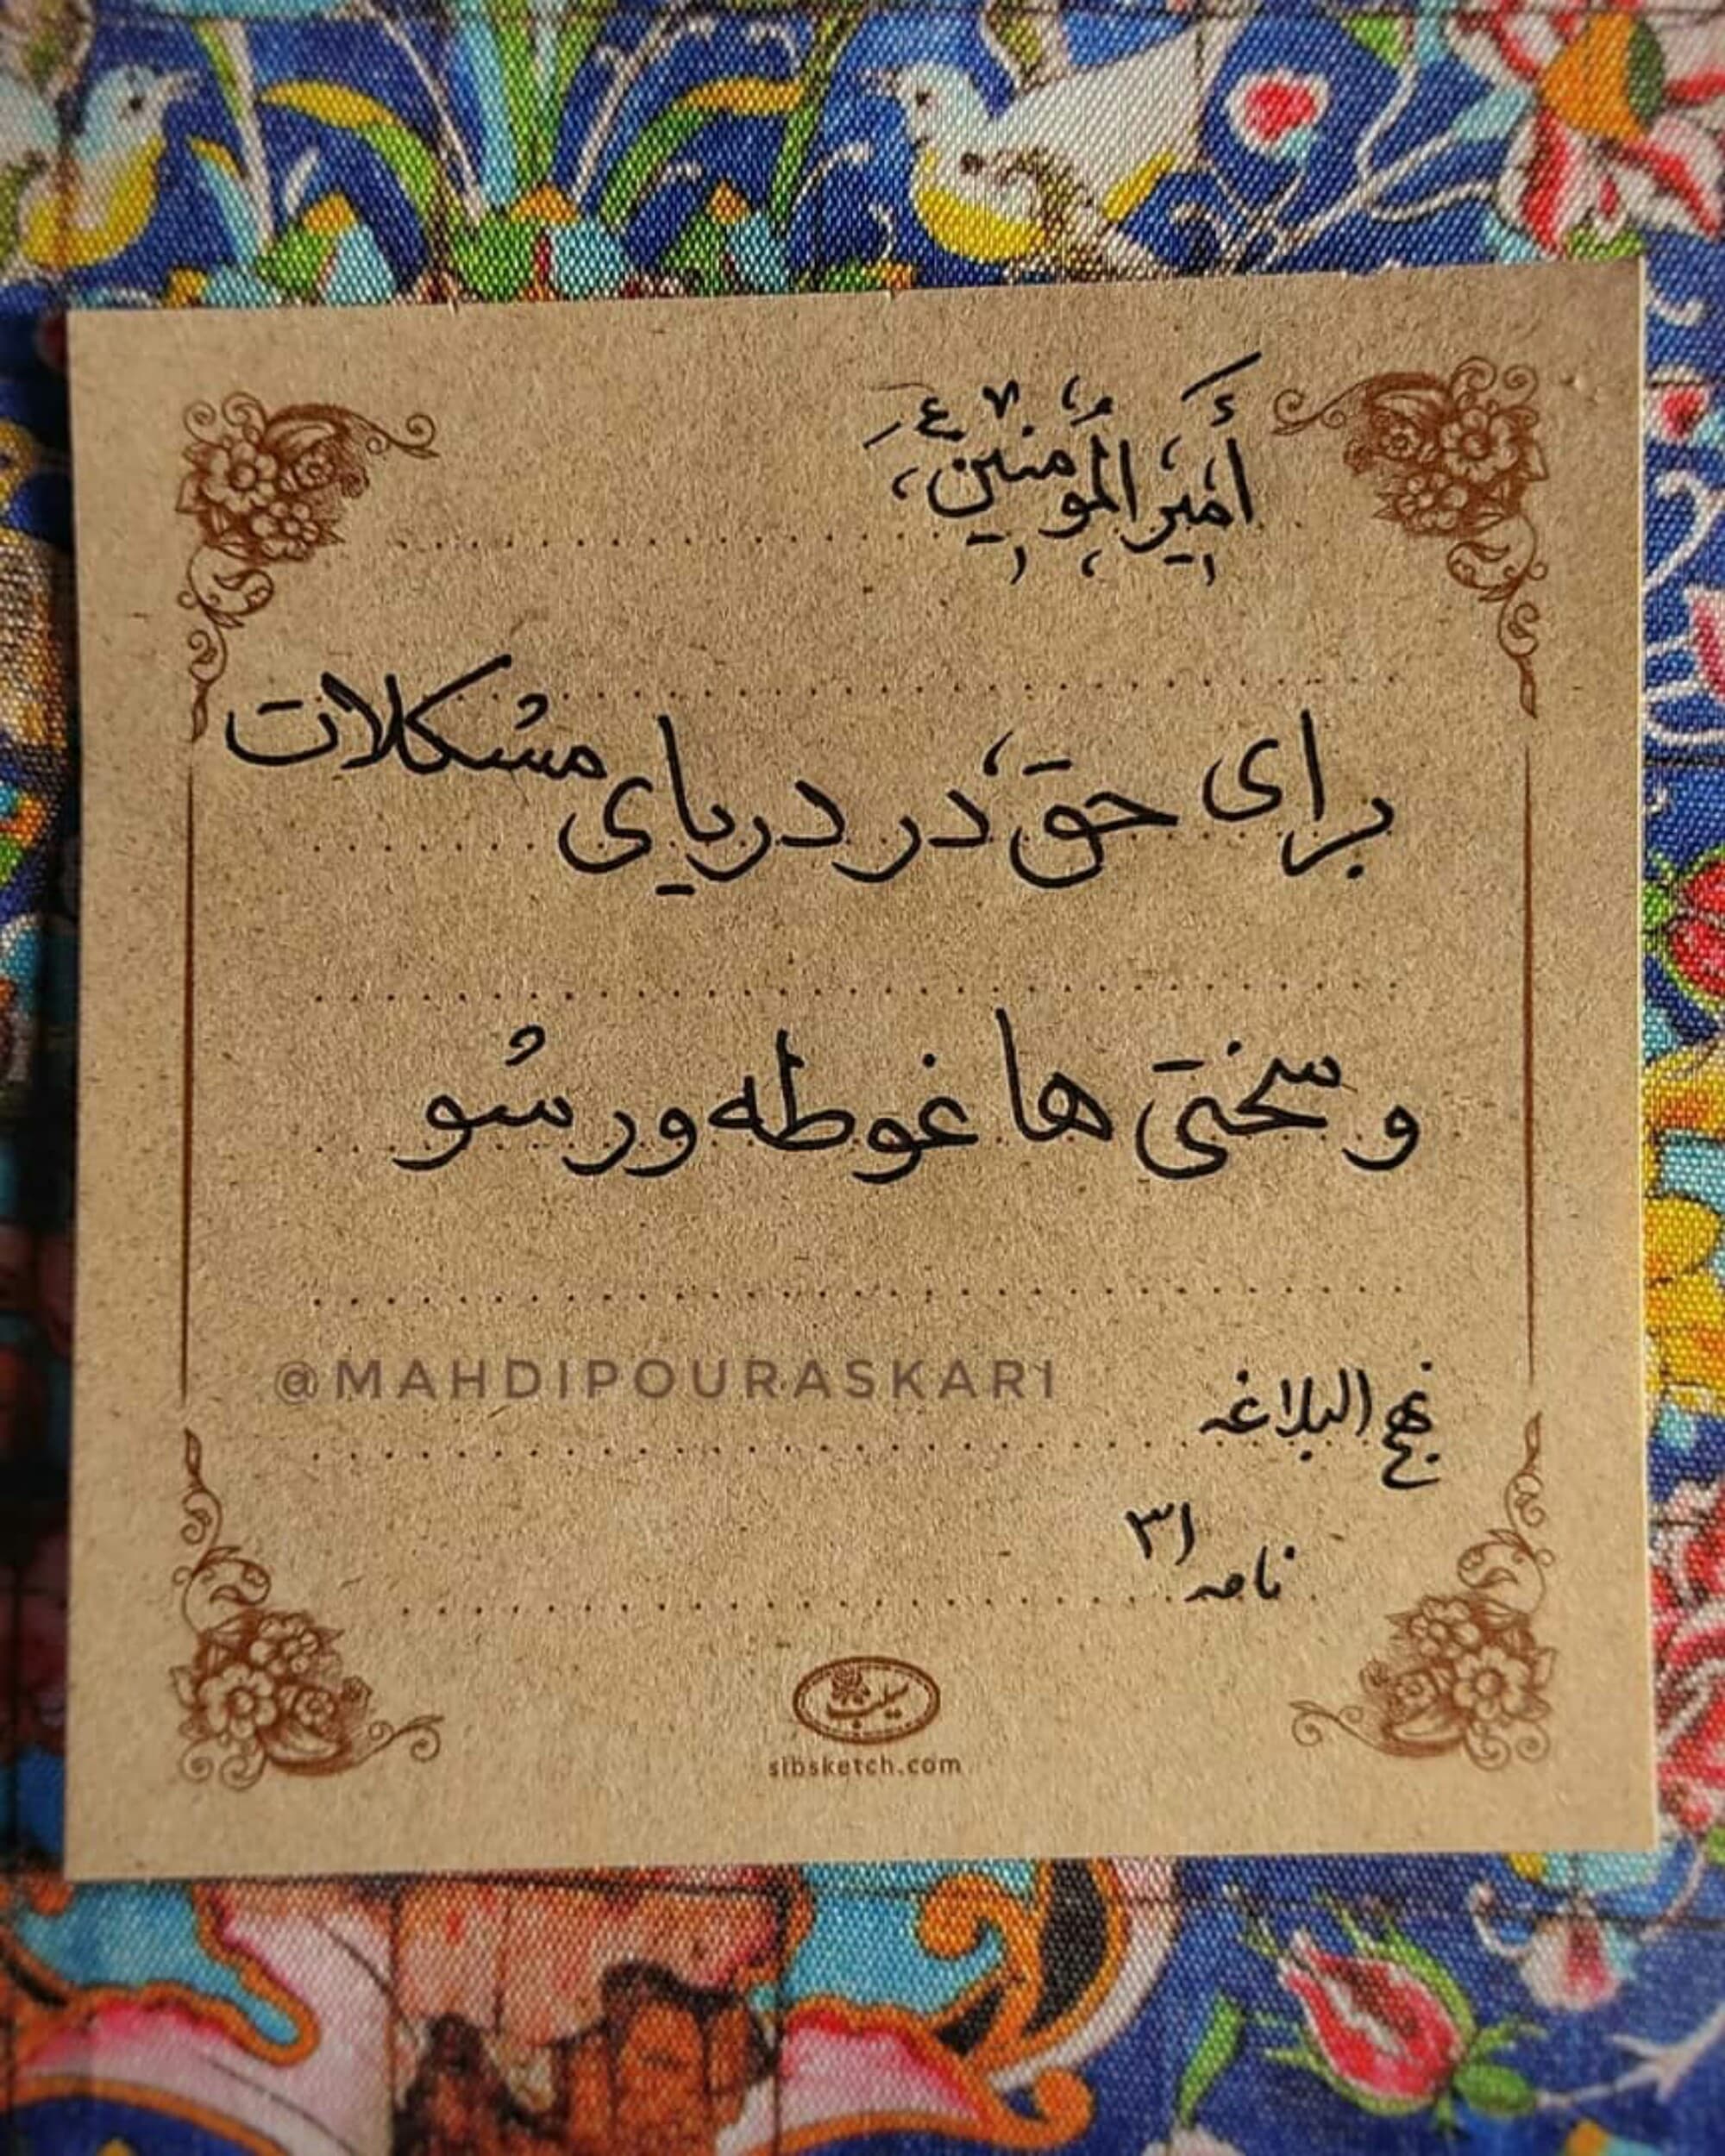 أَمیرِالمُؤمِنینَ ع
برای حق، در دریای مشکلات
و سختی ها غوطه ور شو
@MAHDIPOURASKARI
نهج البلاغه
نامه ۳۱
سیب
sibsketch.com